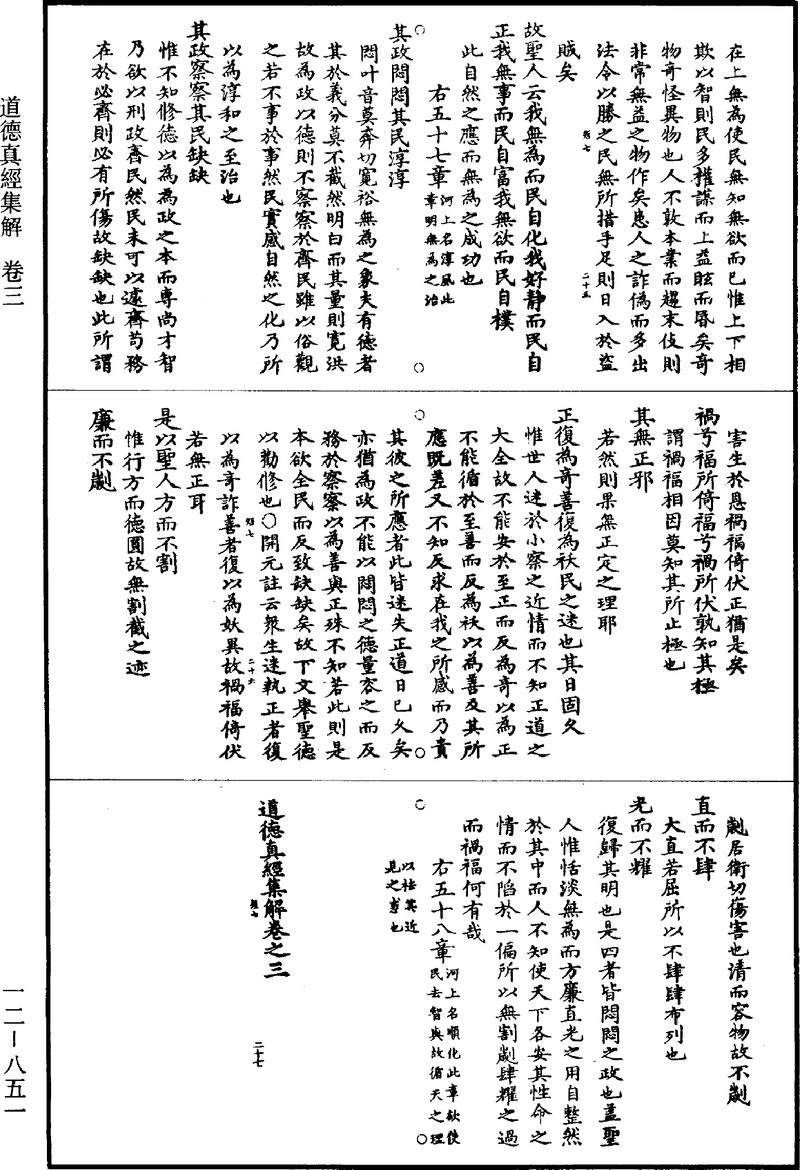 道德真經集解　卷三
一二－八五一
在上無為使民無知無欲而已惟上下相
欺以智則民多權謀而上益眩而昏矣奇
物奇怪異物也人不敦本業而趨末伎則
非常無益之物作矣患人之詐偽而多出
法令以勝之民無所措手足則日入於盜
短七
二十五
賊矣
故聖人云我無為而民自化我好靜而民自
正我無事而民自富我無欲而民自樸
此自然之應而無為之成功也
右五十七章河上名淳風此
章明無為之治
其政悶悶其民淳淳
悶叶音莫奔切寬裕無為之象夫有德者
其於義分莫不截然明白而其量則寬洪
故為政以德則不察察於齊民雖以俗觀
之若不事於事然民實感自然之化乃所
以為淳和之至治也
其政察察其民缺缺
惟不知修德以為為政之本而專尚才智
乃欲以刑政齊民然民未可以遽齊苟務
在於必齊則必有所傷故缺缺也此所謂
害生於恩禍福倚伏正猶是矣
禍兮福所倚福兮禍所伏孰知其極
謂禍福相因莫知其所止極也
其無正邪
若然則果無正定之理耶
正復為奇善復為祅民之迷也其日固久
惟世人迷於小察之近情而不知正道之
大全故不能安於至正而反為奇以為正
不能循於至善而反為祅以為善及其所
應既差又不知反求在我之所感而乃責
其彼之所應者此皆迷失正道日已久矣
亦猶為政不能以悶悶之德量容之而反
務於察察以為善與正殊不知若此則是
本欲全民而反致缺缺矣故下文舉聖德
以勸修也〇開元註云眾生迷執正者復
以為奇詐善者復以為妖異故禍福倚伏
短七
二十六
若無正耳
是以聖人方而不割
惟行方而德圓故無割截之迹
廉而不劌
劌居衛切傷害也清而容物故不劌
直而不肆
大直若屈所以不肆肆布列也
光而不耀
復歸其明也是四者皆悶悶之政也蓋聖
人惟恬淡無為而方廉直光之用自整然
於其中而人不知使天下各安其性命之
情而不陷於一偏所以無割劌肆耀之過
而禍福何有哉
右五十八章河上名順化此章欲使
民去智與故循天之理
以祛其近
見之惑也
道德真經集解卷之三
短七
二十七